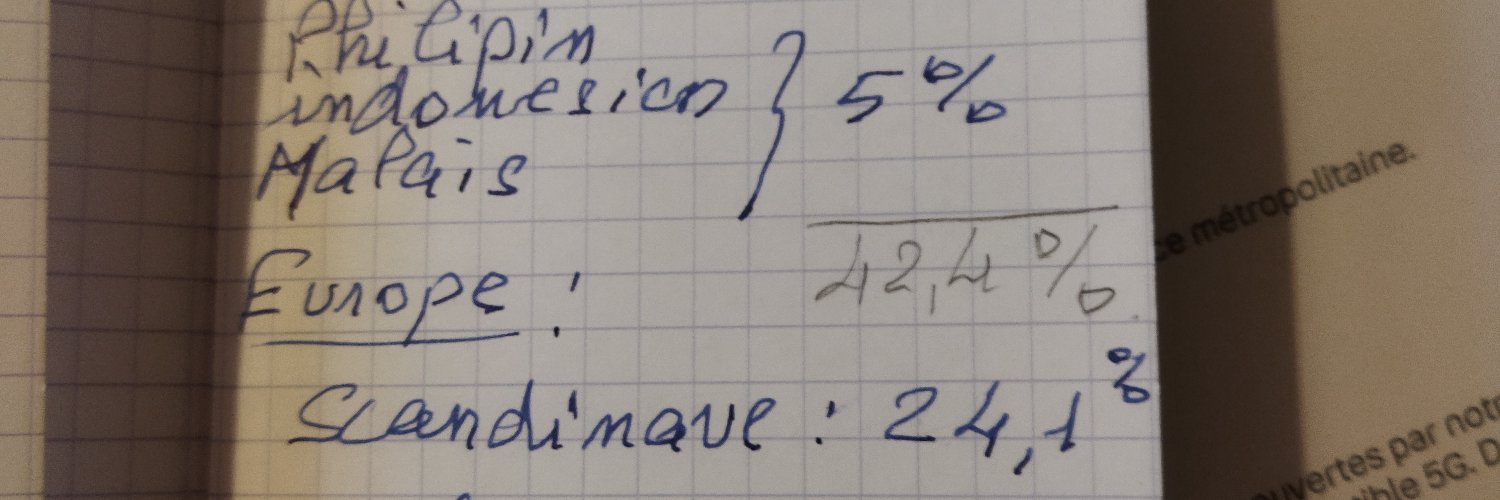 Philipin
indonesien } 5%
Malais
42,4%
Europe :
Scandinave : 24,1%
ce métropolitaine.
ouvertes par notre
ible 5G. D